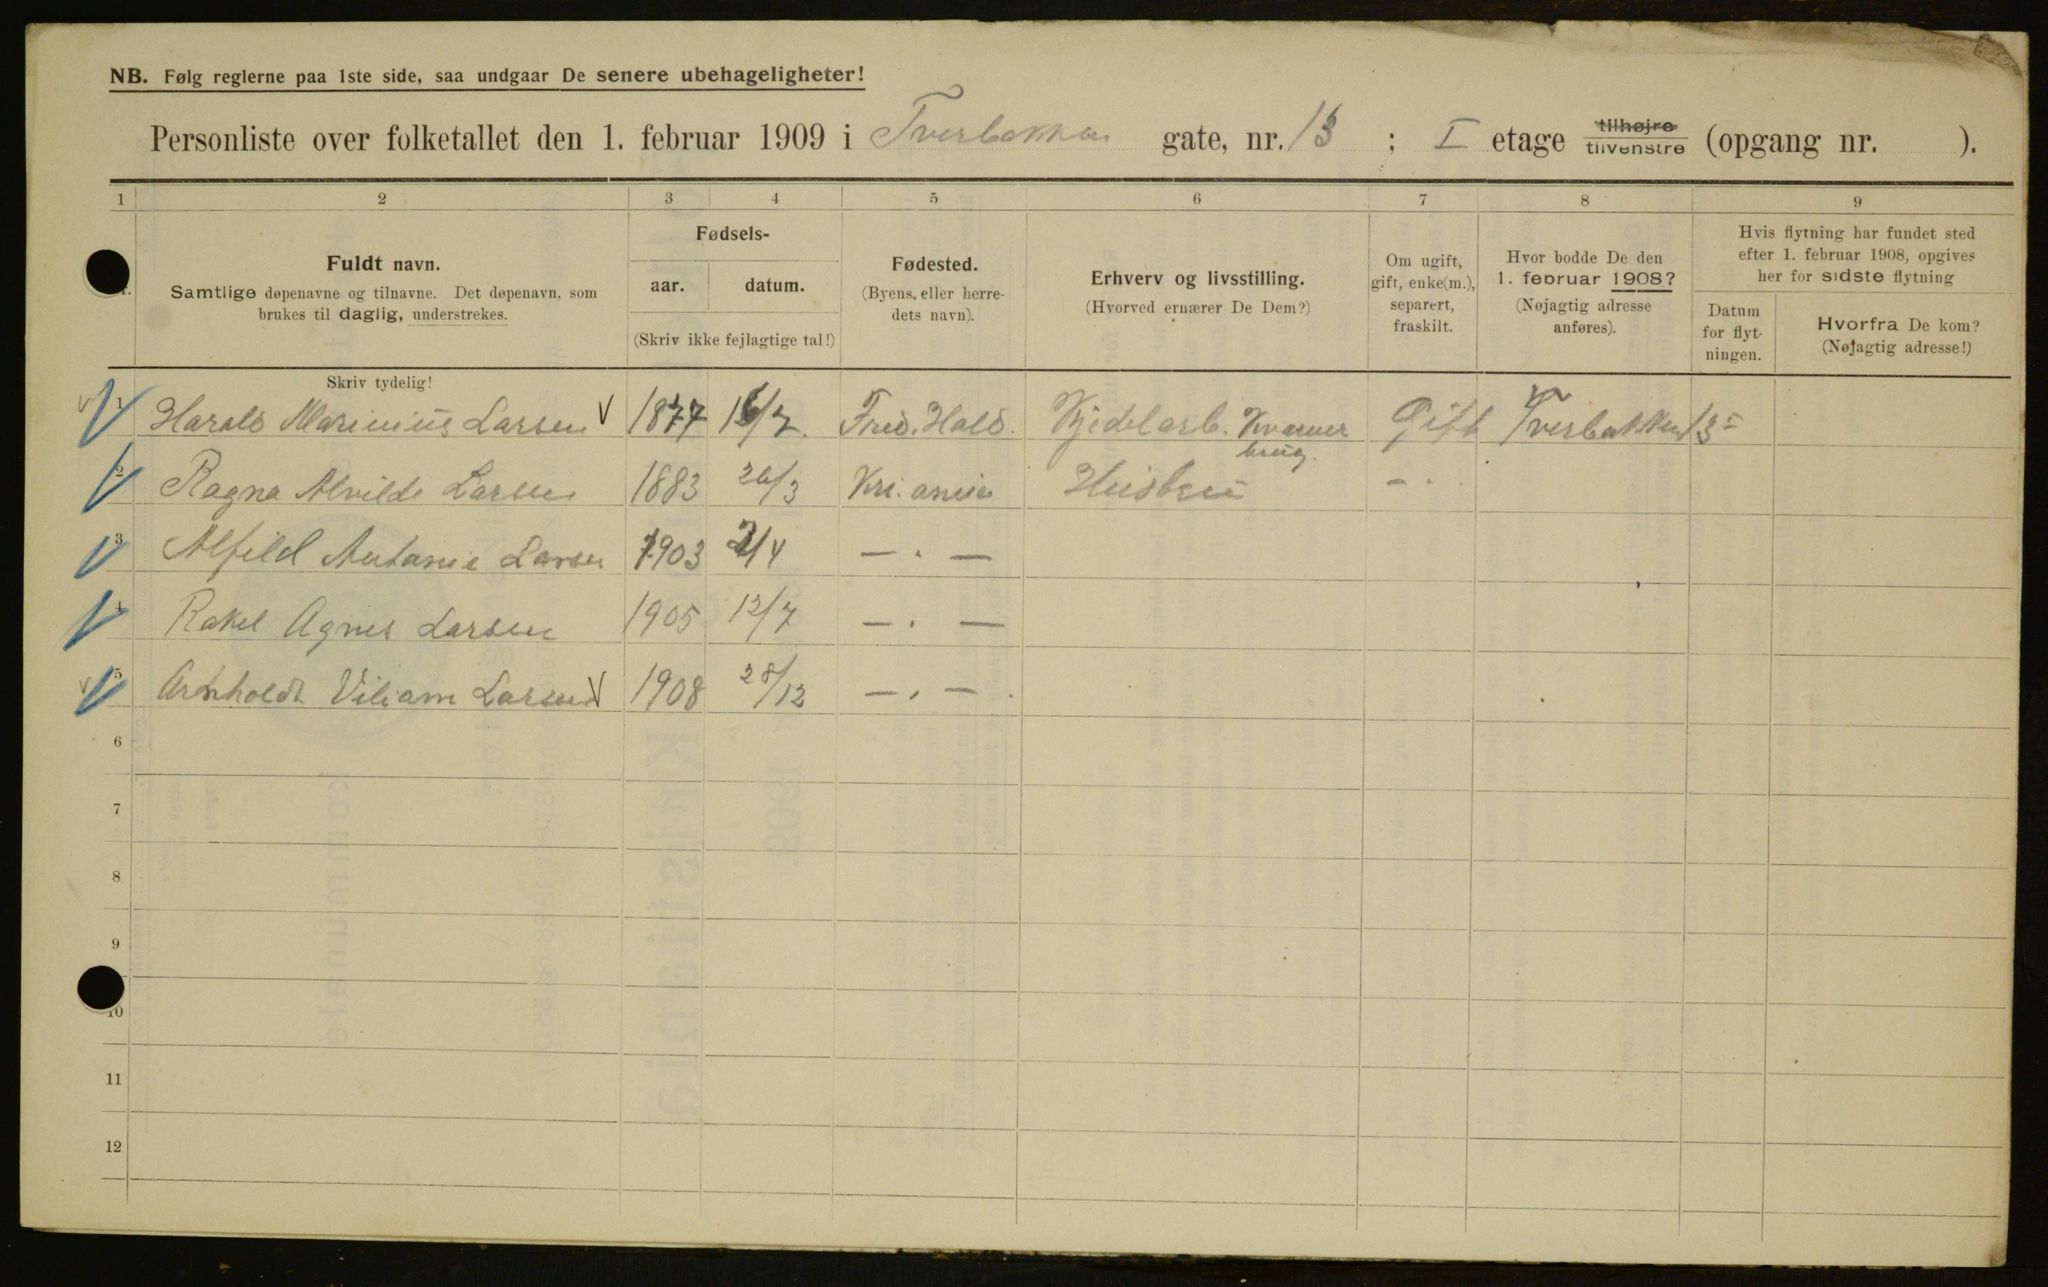 NB. Følg reglerne paa 1ste side, saa undgaar De senere ubehageligheter!
Personliste over folketallet den 1. februar 1909 i Tverbakken gate, nr. 13 ; I etage tilhøjre tilvenstre (opgang nr. ).
1 2 3 4 5 6 7 8 9
Fuldt navn.
Samtlige døpenavne og tilnavne. Det døpenavn, som
brukes til daglig, understrekes.
Skriv tydelig!
Fødsels-
aar. datum.
(Skriv ikke fejlagtige tal!)
Fødested.
(Byens, eller herre-
dets navn).
Erhverv og livsstilling.
(Hvorved ernærer De Dem?)
Om ugift,
gift, enke(m.),
separert,
fraskilt.
Hvor bodde De den
1. februar 1908?
(Nøjagtig adresse
anføres).
Hvis flytning har fundet sted
efter 1. februar 1908, opgives
her for sidste flytning
Datum
for flyt-
ningen.
Hvorfra De kom?
(Nøjagtig adresse!)
1 Harald Marinius Larsen 1877 16/7 Fred. Hald. Kjedelarb. Kværner Gift Tverbakken 13 I
brug.
2 Ragna Alvilde Larsen 1883 26/3 Kri.ania Husbru - .
3 Alfild Antonie Larsen 1903 2/4 — . —
4 Rakel Agnes Larsen 1905 12/7 — . —
5 Arnholdt Viliam Larsen 1908 28/12 — . — .
6
7
8
9
10
11
12